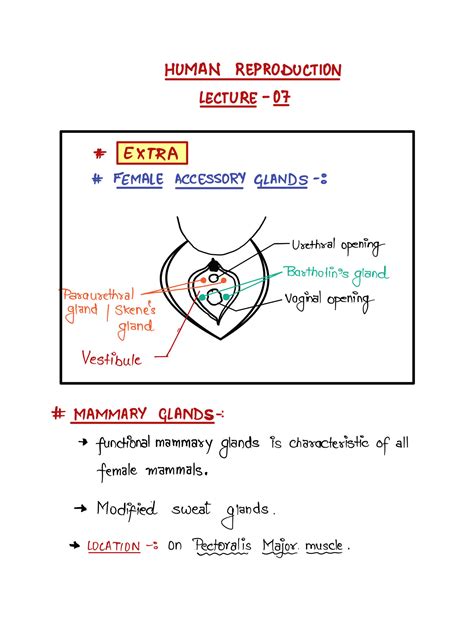 HUMAN REPRODUCTION
LECTURE - 07
# EXTRA
# FEMALE ACCESSORY GLANDS -:
Urethral opening
Bartholin's gland
Paraurethral
gland / Skene's
gland
Vaginal opening
Vestibule
# MAMMARY GLANDS -:
→ functional mammary glands is characteristic of all
female mammals.
→ Modified sweat glands.
→ LOCATION -: on Pectoralis Major muscle.